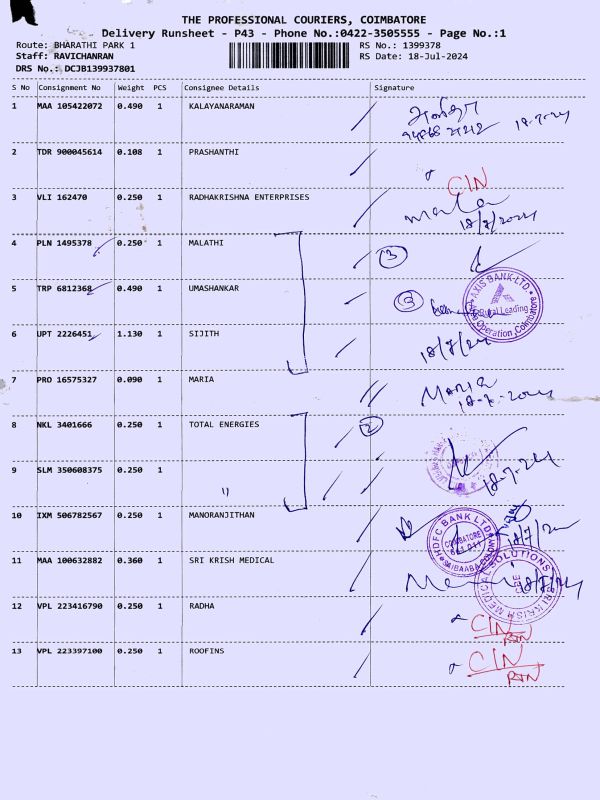 THE PROFESSIONAL COURIERS, COIMBATORE
Delivery Runsheet - P43 - Phone No.:0422-3505555 - Page No.:1
Route: BHARATHI PARK 1 RS No.: 1399378
Staff: RAVICHANRAN RS Date: 18-Jul-2024
DRS No.: DCJB139937801
S No Consignment No Weight PCS Consignee Details Signature
1 MAA 105422072 0.490 1 KALAYANARAMAN
18-7-24
2 TDR 900045614 0.108 1 PRASHANTHI
CIN
3 VLI 162470 0.250 1 RADHAKRISHNA ENTERPRISES
18/7/2024
4 PLN 1495378 0.250 1 MALATHI 3
5 TRP 6812368 0.490 1 UMASHANKAR 3
AXIS BANK LTD.
Retail Lending
Operation, Coimbatore
6 UPT 2226451 1.130 1 SIJITH
18/7/24
7 PRO 16575327 0.090 1 MARIA MARIA
18-7-2024
8 NKL 3401666 0.250 1 TOTAL ENERGIES 2
9 SLM 350608375 0.250 1 " 18-7-24
10 IXM 506782567 0.250 1 MANORANJITHAN
HDFC BANK LTD
COIMBATORE
641 011
SAIBAABA COLONY
18/7/20
11 MAA 100632882 0.360 1 SRI KRISH MEDICAL
SRI KRISH MEDICAL SOLUTIONS
CBE
18/7/24
12 VPL 223416790 0.250 1 RADHA CIN
RTN
13 VPL 223397100 0.250 1 ROOFINS CIN
RTN